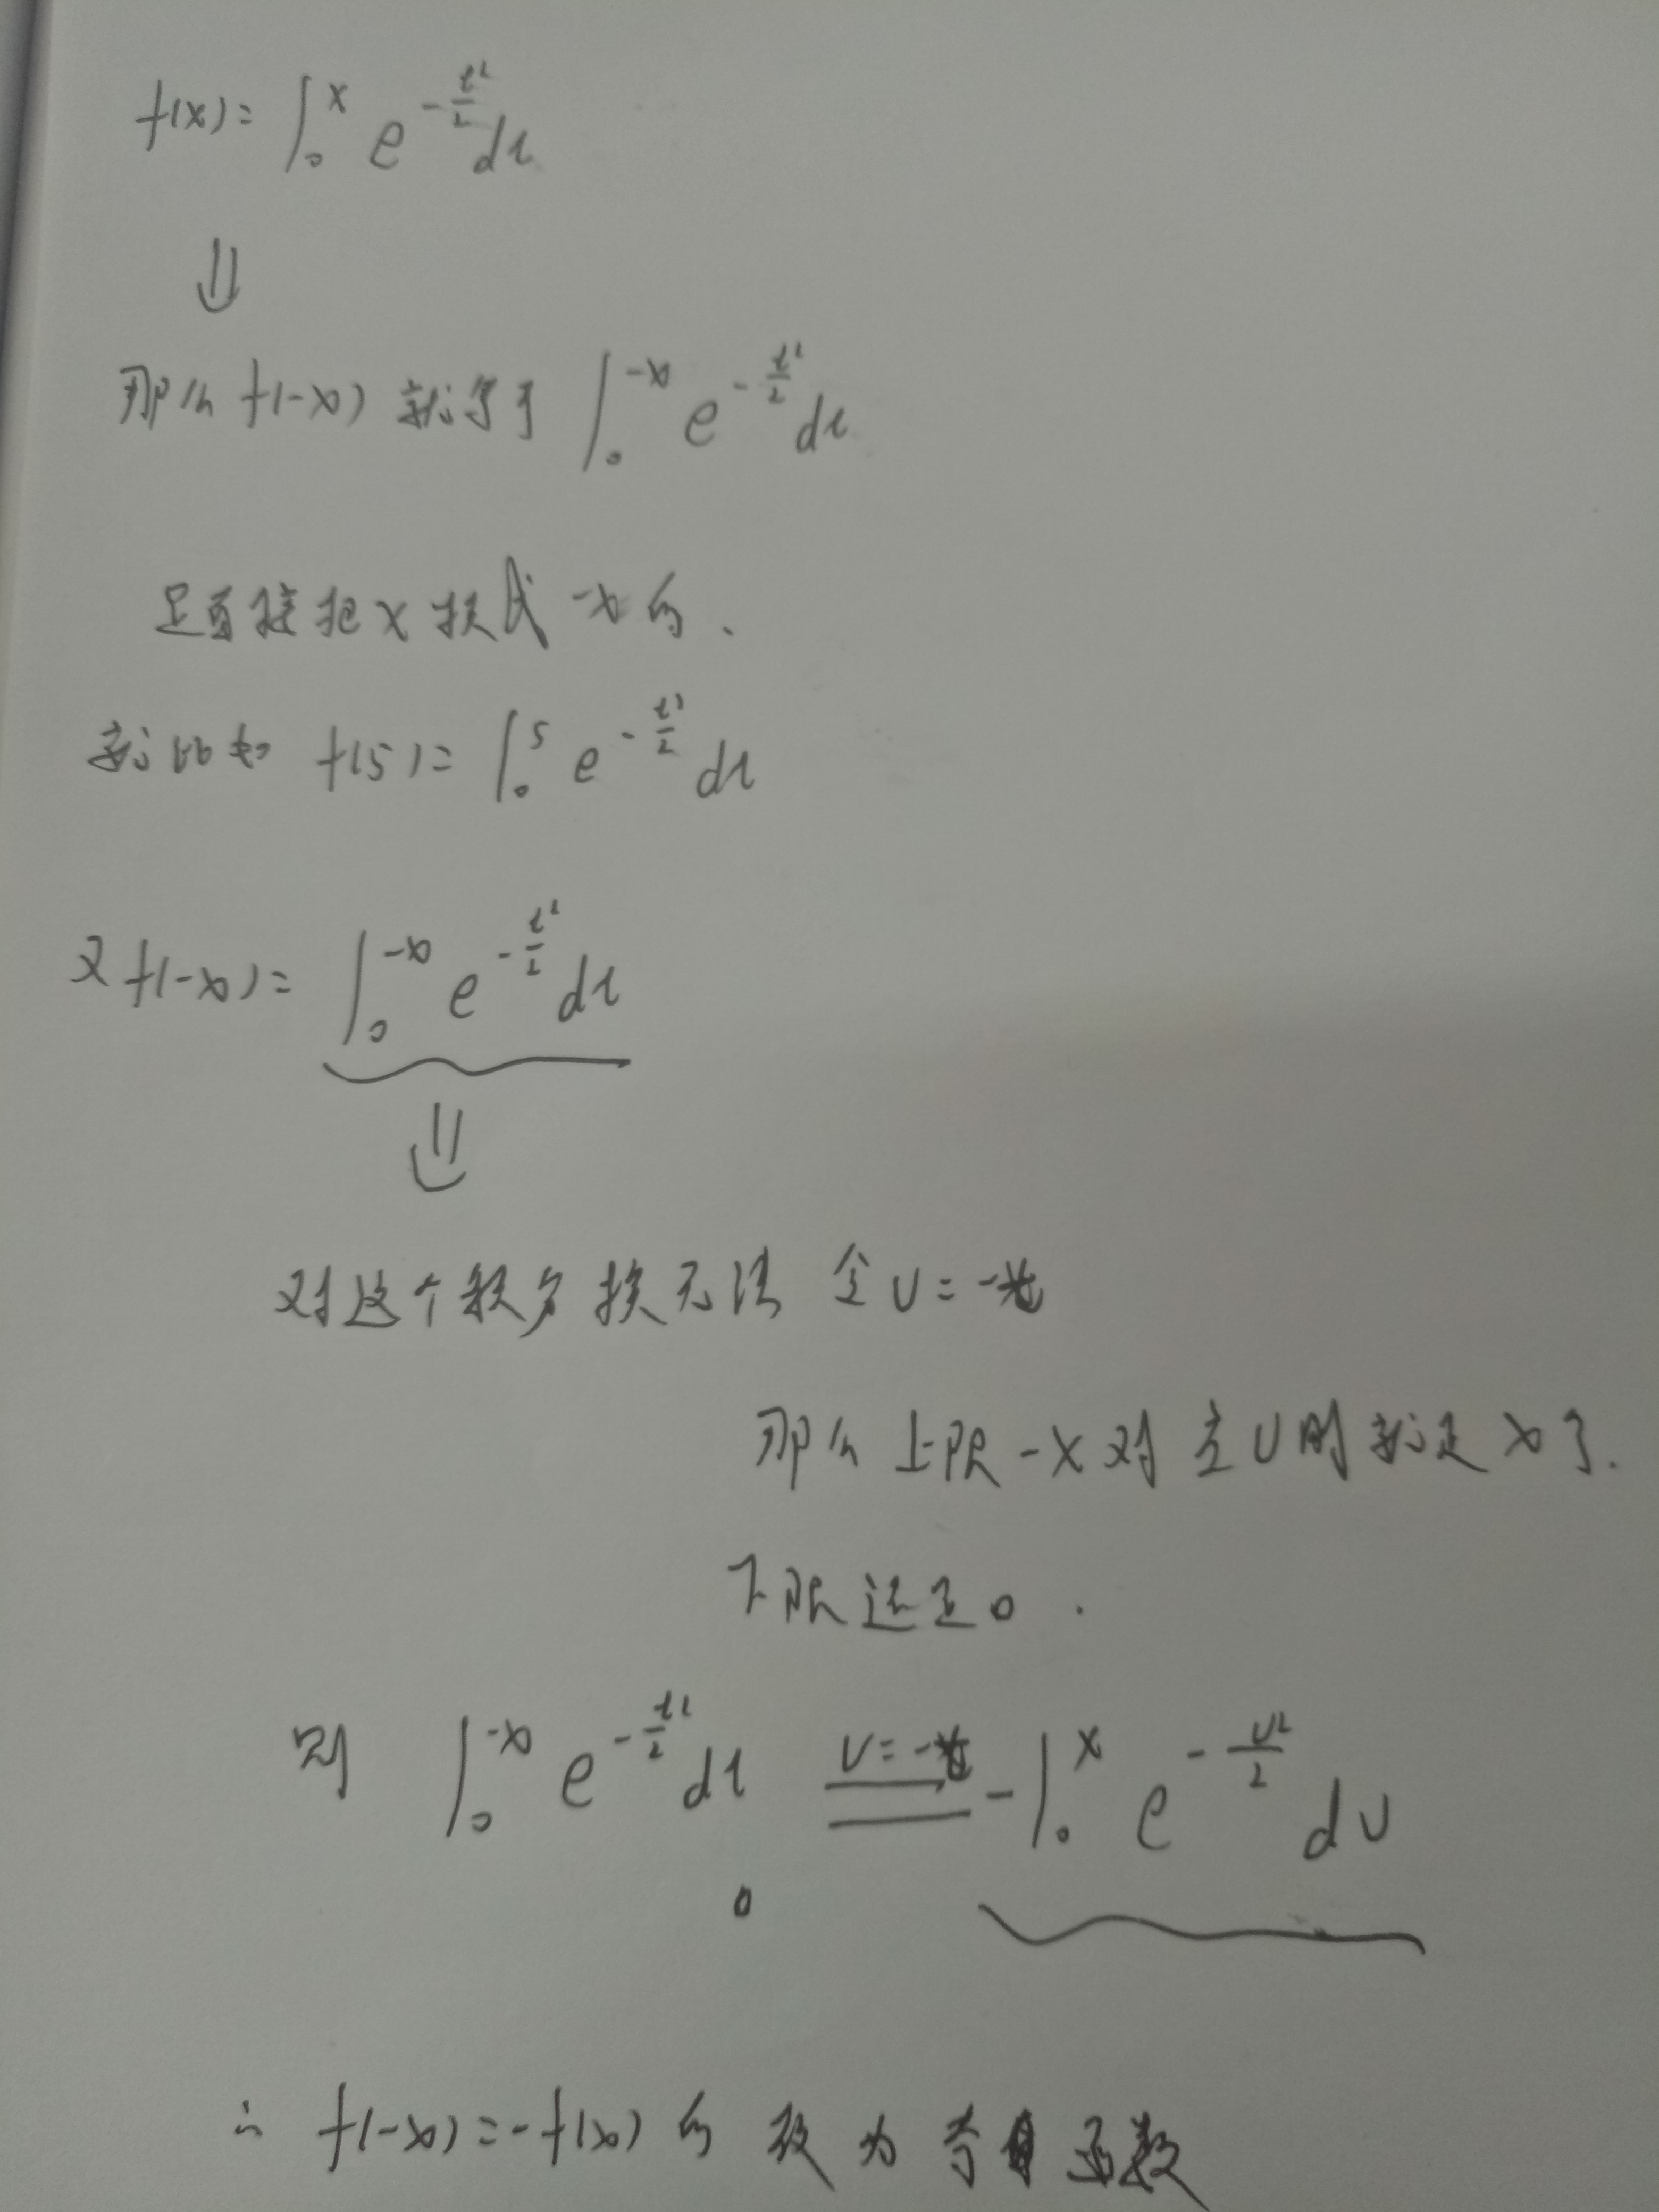 f(x)=∫₀^x e^{-t²/2}dt
⇓
那么f(-x)就等于∫₀^{-x} e^{-t²/2}dt
是直接把x换成-x的.
就比如 f(5)=∫₀^5 e^{-t²/2}dt
又f(-x)=∫₀^{-x} e^{-t²/2}dt
⇓
对这个积分换元法 令u=-t
那么上限-x对应u时就是x了.
下限还是0.
则 ∫₀^{-x} e^{-t²/2}dt ==(u=-t)== -∫₀^x e^{-u²/2}du
∴ f(-x)=-f(x)的 故为奇函数